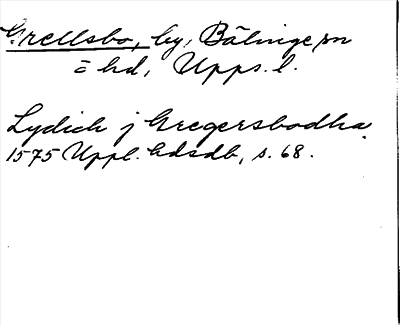 Grellsbo, by, Bälinge sn
= hd, Upps. l.
Lydich j Gregersbodha
1575 Uppl. hdsdb, s. 68.